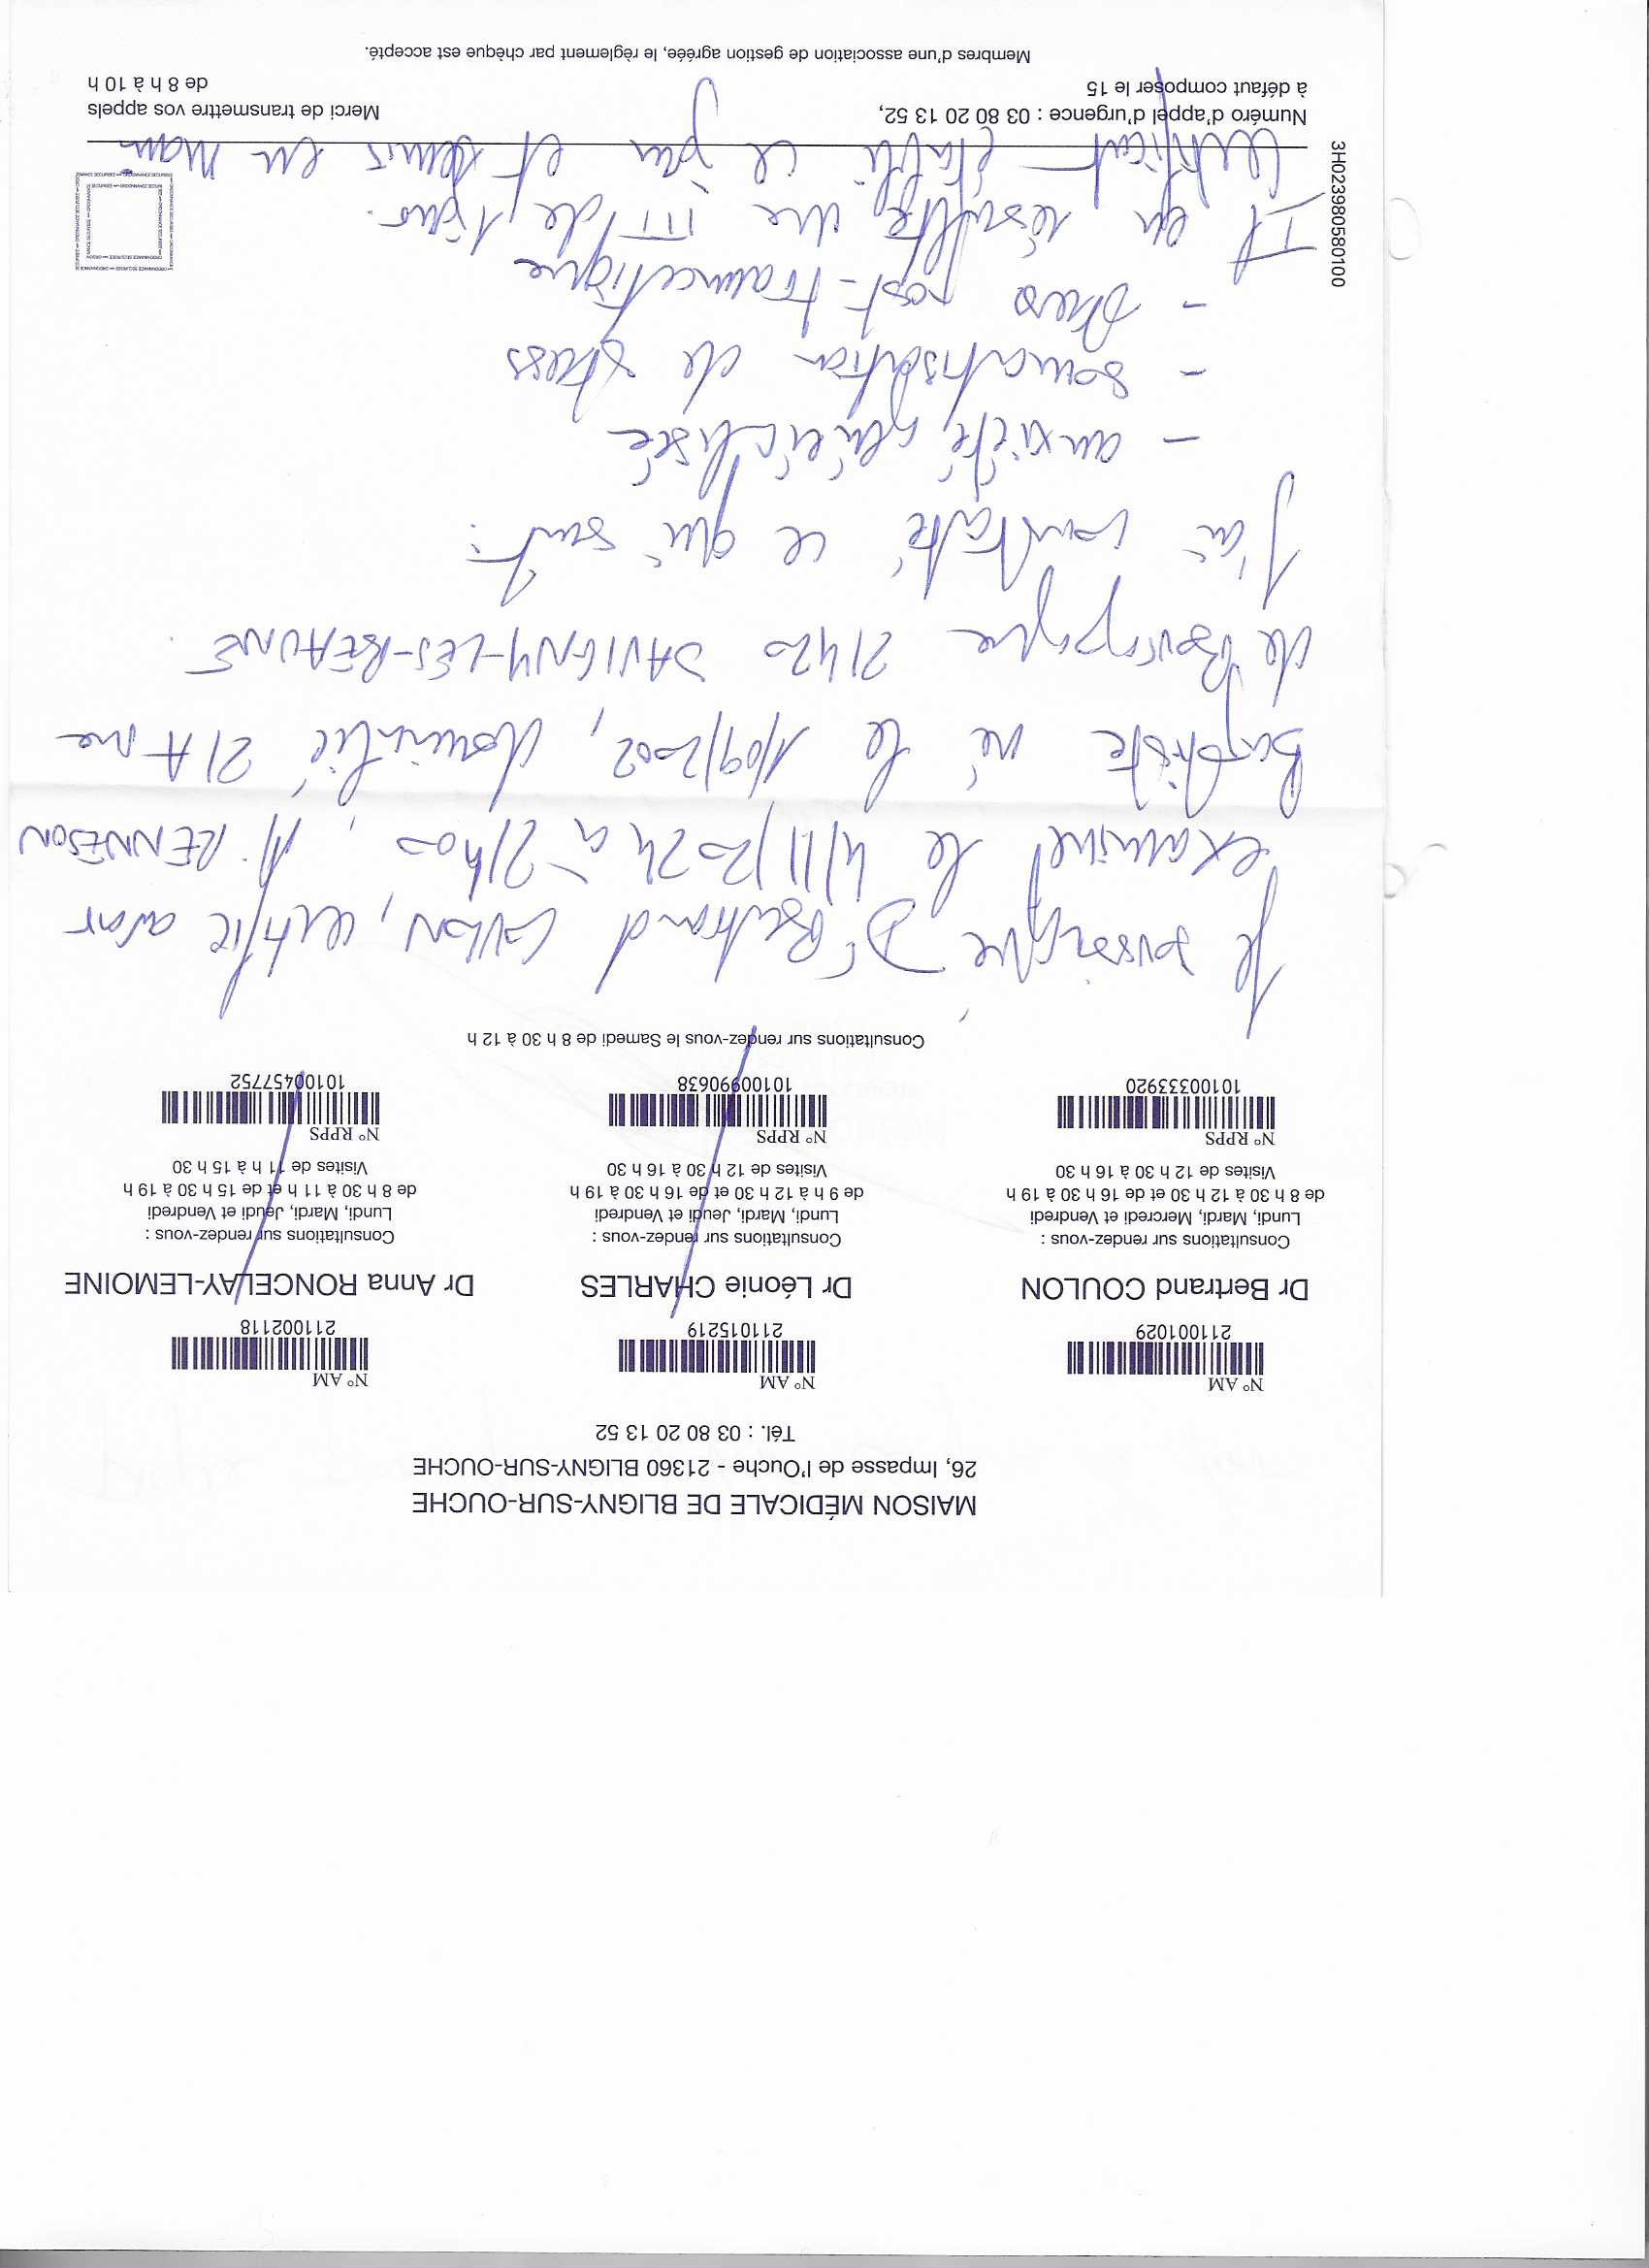 MAISON MÉDICALE DE BLIGNY-SUR-OUCHE
26, Impasse de l'Ouche - 21360 BLIGNY-SUR-OUCHE
Tél. : 03 80 20 13 52
N° AM
211001029
Dr Bertrand COULON
Consultations sur rendez-vous :
Lundi, Mardi, Mercredi et Vendredi
de 8 h 30 à 12 h 30 et de 16 h 30 à 19 h
Visites de 12 h 30 à 16 h 30
N° RPPS
10100333920
N° AM
211015219
Dr Léonie CHARLES
Consultations sur rendez-vous :
Lundi, Mardi, Jeudi et Vendredi
de 9 h à 12 h 30 et de 16 h 30 à 19 h
Visites de 12 h 30 à 16 h 30
N° RPPS
10100990638
N° AM
211002118
Dr Anna RONCELAY-LEMOINE
Consultations sur rendez-vous :
Lundi, Mardi, Jeudi et Vendredi
de 8 h 30 à 11 h et de 15 h 30 à 19 h
Visites de 11 h à 15 h 30
N° RPPS
10100457752
Consultations sur rendez-vous le Samedi de 8 h 30 à 12 h
Je soussigné Dr Bertrand COULON, certifie avoir
examiné le 4/11/2024 à 21h00, M. RENNESON
Baptiste né le 1/09/2002, domicilié 21A rue
de Bourgogne 21420 SAVIGNY-LES-BEAUNE.
J'ai constaté ce qui suit :
- anxiété généralisée
- somatisation de stress
- stress post-traumatique
Il en résulte une ITT de 1 jour.
Certificat établi ce jour et remis en main
3H023980580100
Numéro d'appel d'urgence : 03 80 20 13 52,
à défaut composer le 15
Merci de transmettre vos appels
de 8 h à 10 h
Membres d'une association de gestion agréée, le règlement par chèque est accepté.